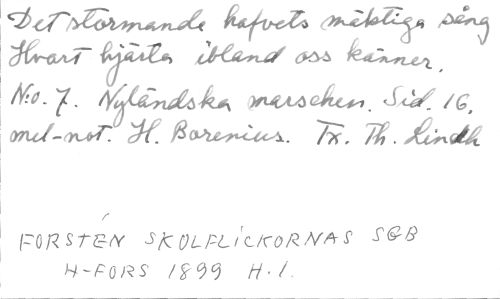 Det stormande hafvets mäktiga sång
Hvart hjärta ibland oss känner.
N:o. 7. Nyländska marschen. Sid. 16.
mel-not. H. Borenius. Tx. Th. Lindh
FORSTÉN SKOLFLICKORNAS SGB
H-FORS 1899 H.1.